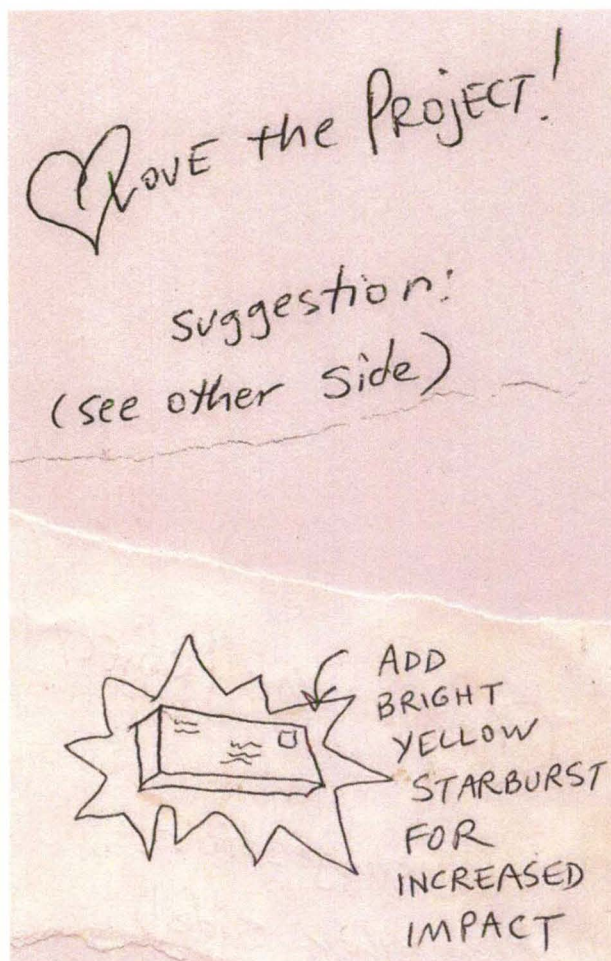 LOVE the PROJECT!
suggestion:
(see other side)
ADD
BRIGHT
YELLOW
STARBURST
FOR
INCREASED
IMPACT